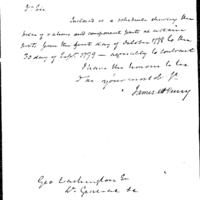 Sir
Inclosed is a schedule shewing the
price of rations and component parts at certain
posts from the first day of October 1798 to the
30 day of Sept. 1799 — agreeably to contract
I have the honor to be
James McHenry
Geo Washington Esq
Lt. General &c